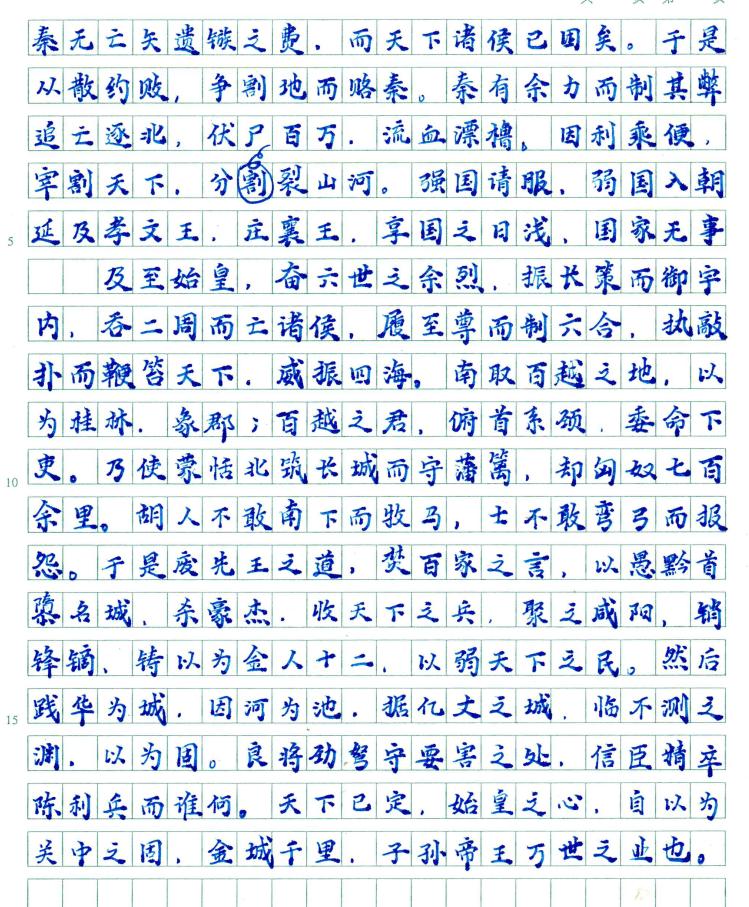 秦无亡矢遗镞之费，而天下诸侯已困矣。于是
从散约败，争割地而赂秦。秦有余力而制其弊
追亡逐北，伏尸百万，流血漂橹。因利乘便，
宰割天下，分割裂山河。强国请服，弱国入朝
5 延及孝文王，庄襄王，享国之日浅，国家无事
及至始皇，奋六世之余烈，振长策而御宇
内，吞二周而亡诸侯，履至尊而制六合，执敲
扑而鞭笞天下，威振四海。南取百越之地，以
为桂林，象郡；百越之君，俯首系颈，委命下
10 吏。乃使蒙恬北筑长城而守藩篱，却匈奴七百
余里。胡人不敢南下而牧马，士不敢弯弓而报
怨。于是废先王之道，焚百家之言，以愚黔首
隳名城，杀豪杰，收天下之兵，聚之咸阳，销
锋镝，铸以为金人十二，以弱天下之民。然后
15 践华为城，因河为池，据亿丈之城，临不测之
渊，以为固。良将劲弩守要害之处，信臣精卒
陈利兵而谁何。天下已定，始皇之心，自以为
关中之固，金城千里，子孙帝王万世之业也。